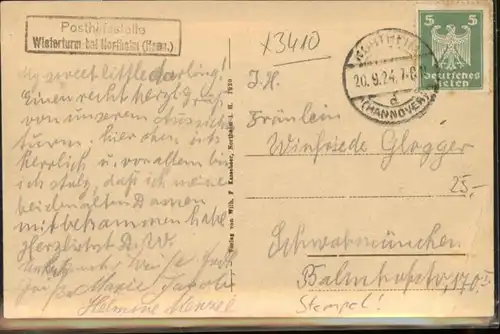 Posthilfsstelle
Wieterturm bei Northeim (Hann.)
My sweet little darling!
Einen recht herzl. Gruß
von unserem Aussichts
turm. hier oben ist's
herrlich u. vor allem bin
ich stolz, daß ich meine
beiden alten Damen
mitbekommen habe.
Herzlichst D. W.
Luise
Marie Jacobi
Helmine Menzel
Verlag von Wilh. F Kassebeer, Northeim i. H. 1920
X3410
NORTHEIM
20. 9. 24. 7-8
d
(HANNOVER)
5 5
Deutsches
Reich
I. H.
Fräulein
Winfriede Glogger
25.-
Schwabmünchen
Bahnhofstr. 170
Stempel!